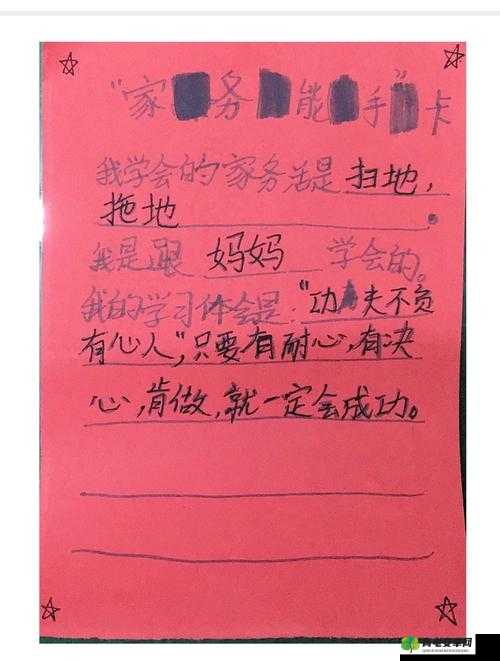 “家务能手”卡
我学会的家务活是 扫地，
拖地。
我是跟 妈妈 学会的。
我的学习体会是：“功夫不负
有心人”，只要有耐心，有决
心，肯做，就一定会成功。